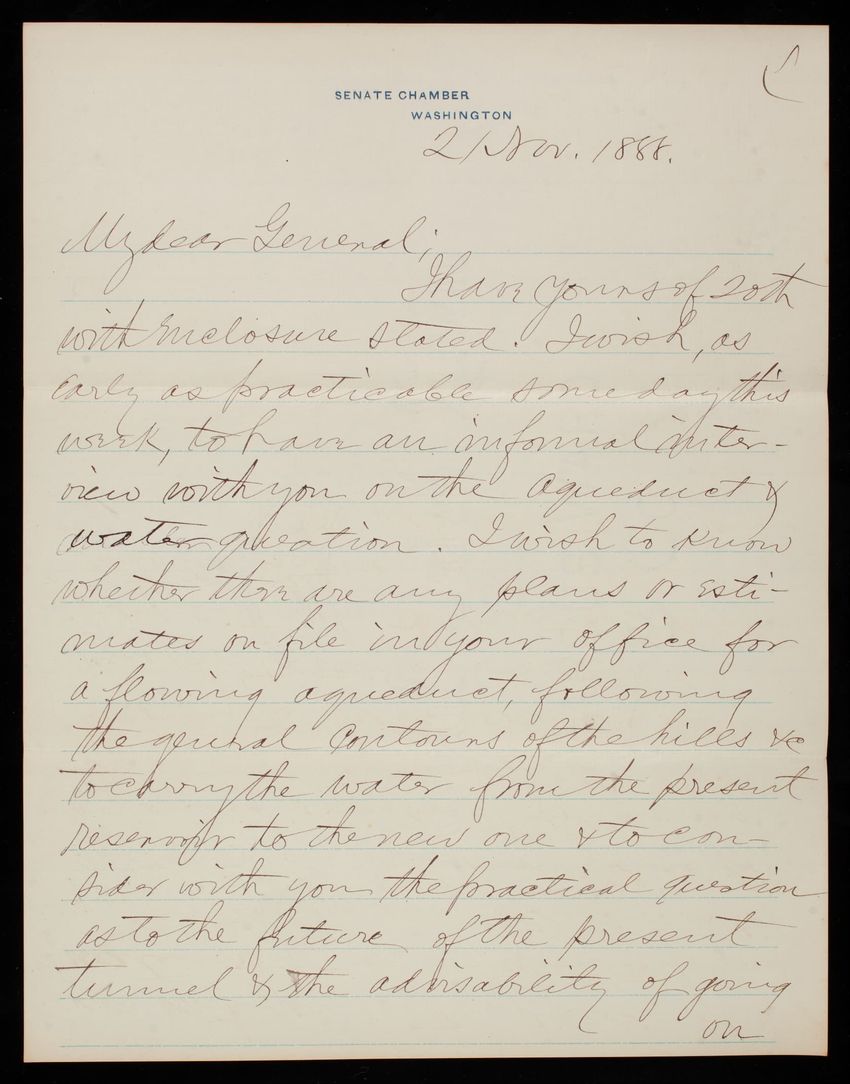 SENATE CHAMBER
WASHINGTON
21 Nov. 1888.
My dear General;
I have yours of 20th
with enclosure stated. I wish, as
early as practicable some day this
week, to have an informal inter-
view with you on the aqueduct &
water question. I wish to know
whether there are any plans or esti-
mates on file in your office for
a flowing aqueduct, following
the general contours of the hills &c
to carry the water from the present
reservoir to the new one & to con-
sider with you the practical question
as to the future of the present
tunnel & the advisability of going
on